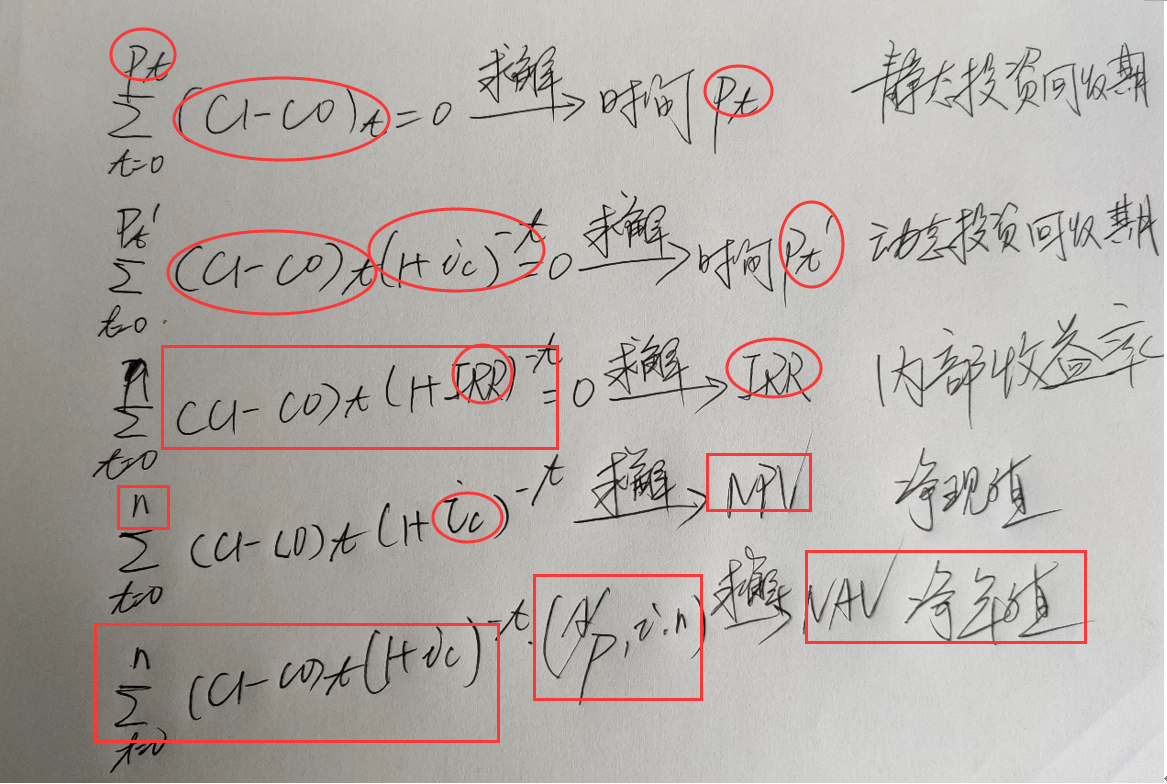 Pt
∑ (CI-CO)t=0 求解→ 时间Pt 静态投资回收期
t=0
Pt'
∑ (CI-CO)t(1+ic)^-t=0 求解→ 时间Pt' 动态投资回收期
t=0
n
∑ (CI-CO)t(1+IRR)^-t=0 求解→ IRR 内部收益率
t=0
n
∑ (CI-CO)t(1+ic)^-t 求解→ NPV 净现值
t=0
n
∑ (CI-CO)t(1+ic)^-t·(A/P,i,n) 求解→ NAV 净年值
t=0